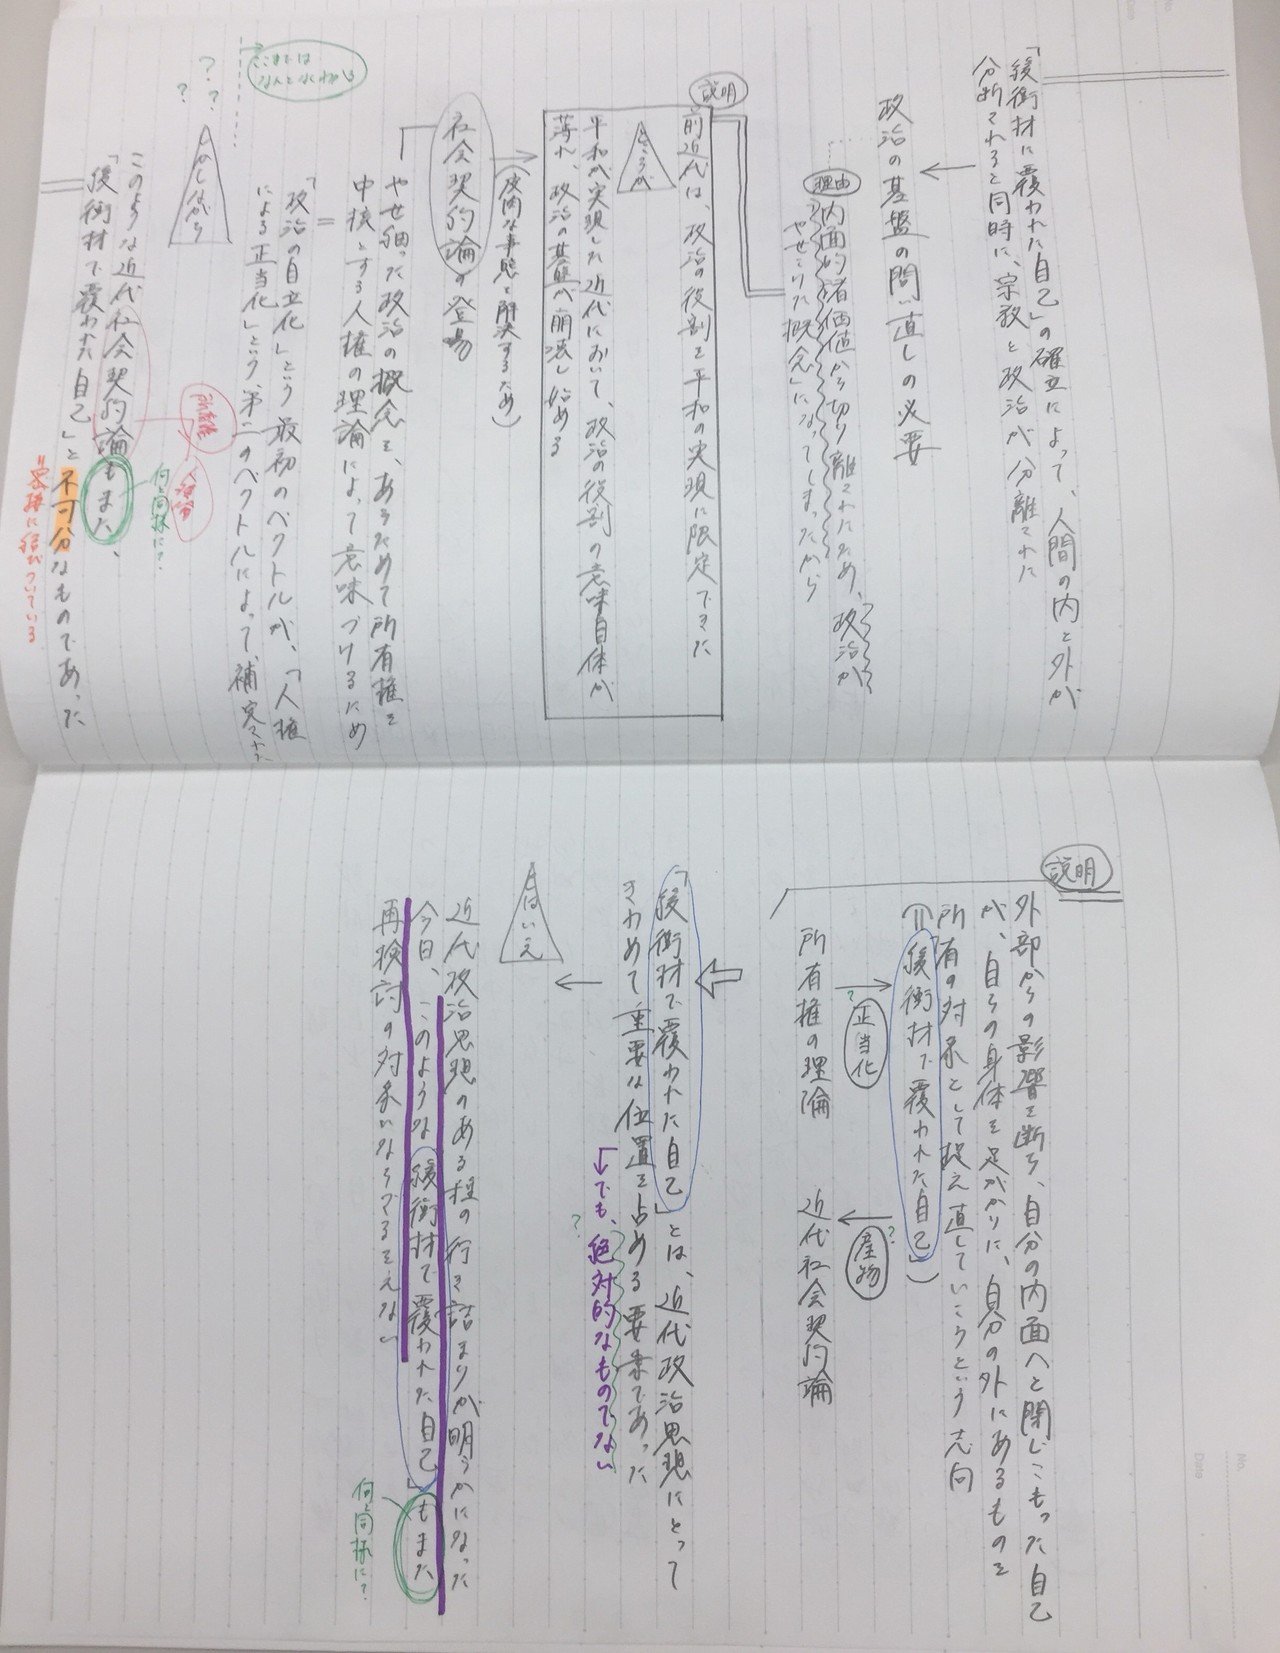 「緩衝材に覆われた自己」の確立によって、人間の内と外が
分断されると同時に、宗教と政治が分離された
政治の基盤の問い直しの必要
理由
内面的諸価値から切り離されたため、政治が
やせこけた概念」になってしまったから
説明
前近代は、政治の役割を平和の実現に限定できた
ところが
平和が実現した近代において、政治の役割の意味自体が
薄れ、政治の基盤が崩壊し始める
(皮肉な事態を解決するため)
社会契約論の登場
やせ細った政治の概念を、あらためて所有権を
中核とする人権の理論によって意味づけるため
=
「政治の自立化」という最初のベクトルが、「人権
による正当化」という、第二のベクトルによって、補完された
ここまでは
なんとなくわかる
?
?
?
しかしながら
このような近代社会契約論もまた、
所有権
人権論
何と同様に?
「緩衝材で覆われた自己」と不可分なものであった
=密接に結びついている
説明
外部からの影響を断ち、自分の内面へと閉じこもった自己
が、自らの身体を足がかりに、自分の外にあるものを
所有の対象として捉え直していこうという志向
(=「緩衝材で覆われた自己」)
?
正当化
?
産物
所有権の理論
近代社会契約論
「緩衝材で覆われた自己」とは、近代政治思想にとって
きわめて重要な位置を占める要素であった
でも、絶対的なものでない
?
とはいえ
近代政治思想のある種の行き詰まりが明らかになった
今日、このような「緩衝材で覆われた自己」もまた
再検討の対象にならざるをえない
何と同様に?
No.
Date